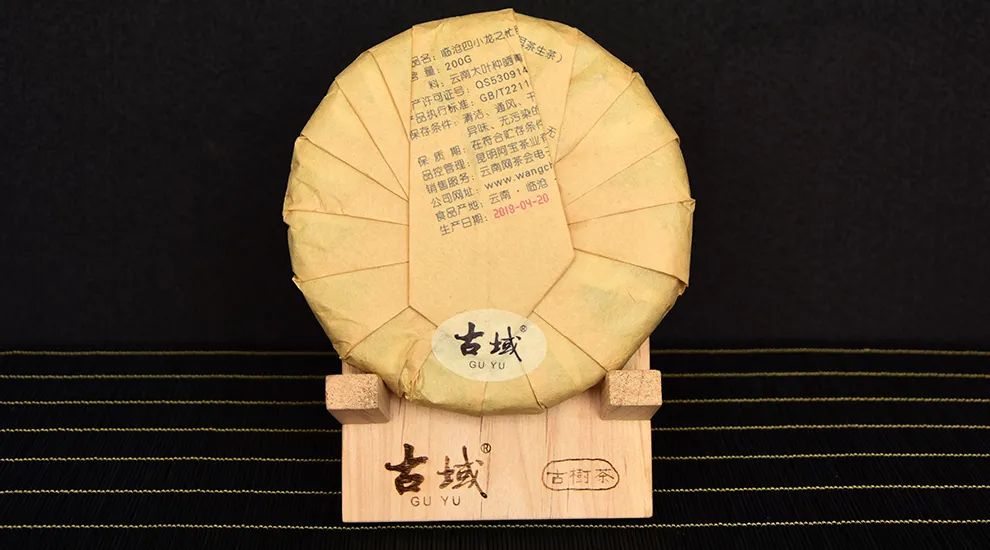 品名：临沧四小龙之忙
洱茶生茶）
含 量：200G
料：云南大叶种晒青
产许可证号：QS530914
产品执行标准：GB/T2211
保存条件：清洁、通风、干
异味、无污染的
保 质 期：在符合贮存条件
品控管理：昆明阿宝茶业有
销售服务：云南网茶会电
公司网址：www.wangch
食品产地：云南·临沧
生产日期：2019-04-20
古域®
GU YU
古域®
GU YU
古树茶